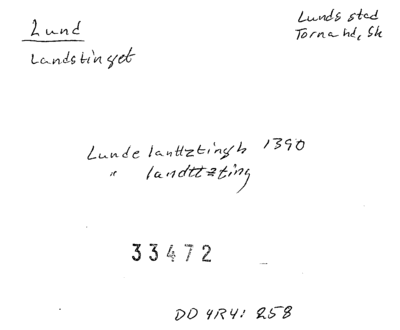 Lund
Landstinget
Lunds stad
Torna hd, Sk
Lunde lanttztingh 1390
" landttzting
33472
DD 4R4: 258